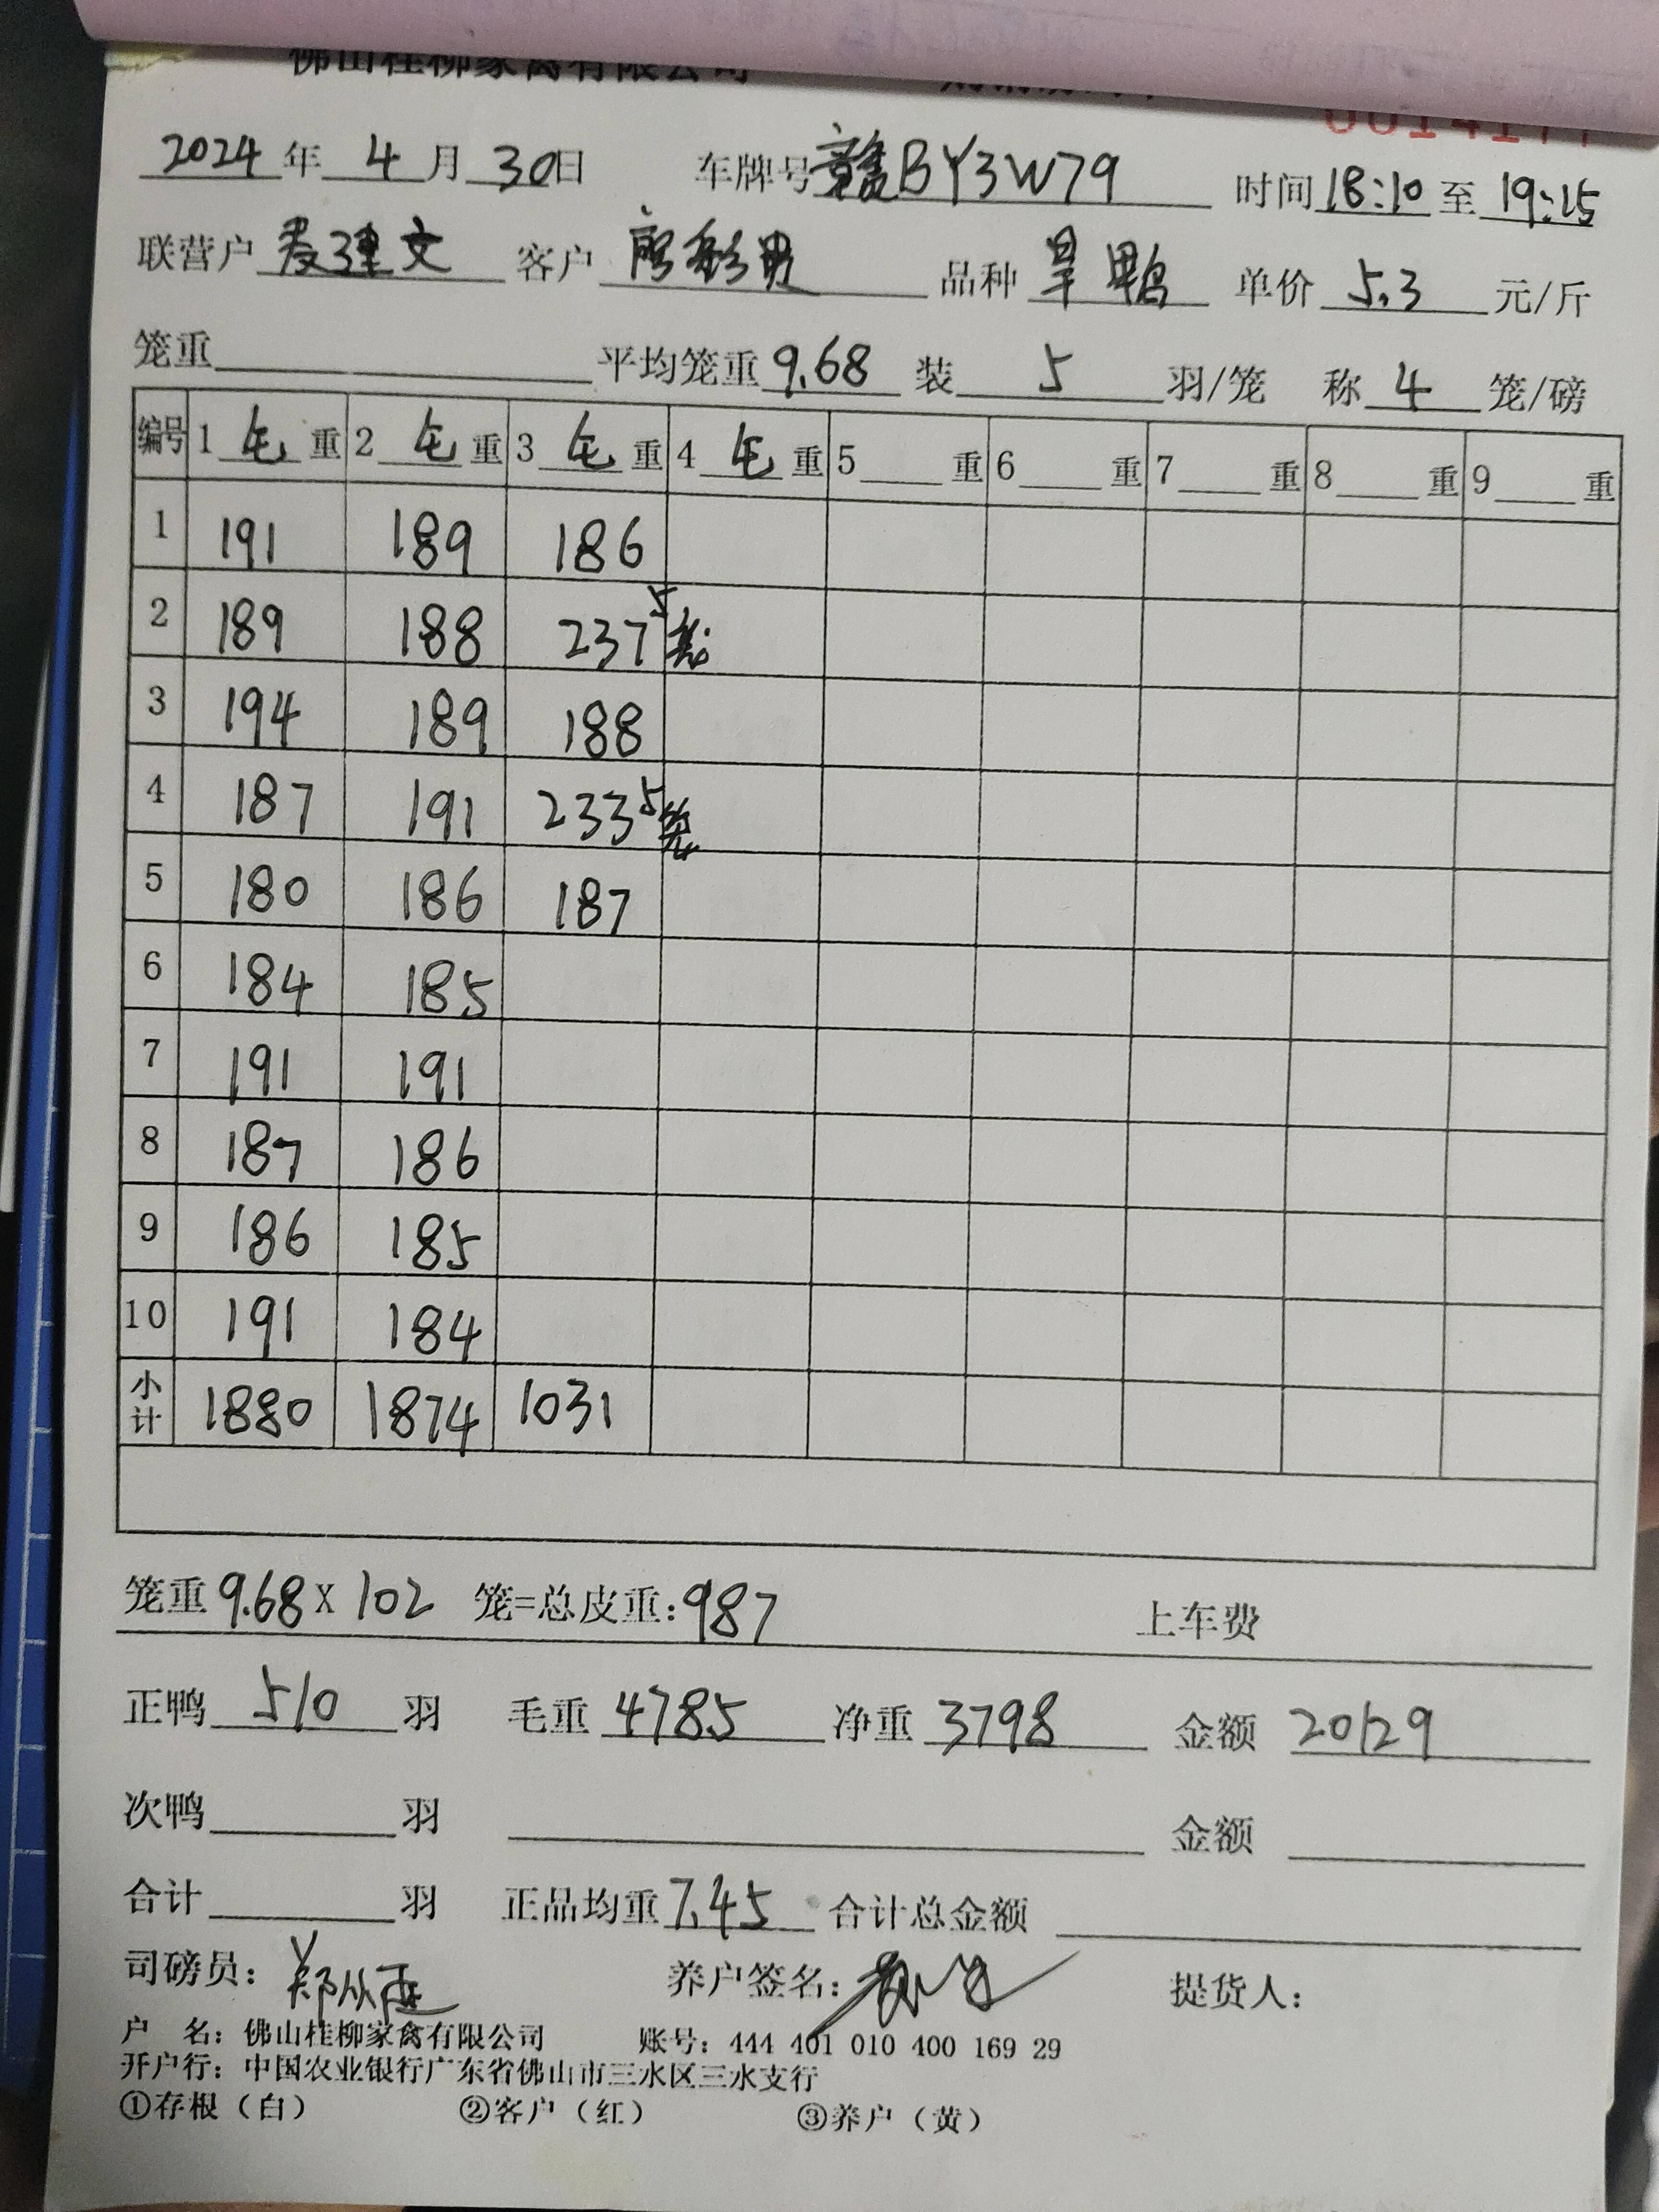 佛山桂柳家禽有限公司
2024年 4月 30日 车牌号 赣BY3W79 时间 18:10 至 19:15
联营户 麦建文 客户 品种 旱鸭 单价 5.3 元/斤
笼重 平均笼重 9.68 装 5 羽/笼 称 4 笼/磅
编号 1 毛 重 2 毛 重 3 毛 重 4 毛 重 5 重 6 重 7 重 8 重 9 重
1 191 189 186
2 189 188 237 5笼
3 194 189 188
4 187 191 233 5笼
5 180 186 187
6 184 185
7 191 191
8 187 186
9 186 185
10 191 184
小计 1880 1874 1031
笼重 9.68 X 102 笼=总皮重: 987 上车费
正鸭 510 羽 毛重 4785 净重 3798 金额 20129
次鸭 羽 金额
合计 羽 正品均重 7.45 合计总金额
司磅员: 养户签名: 提货人:
户 名: 佛山桂柳家禽有限公司 账号: 444 401 010 400 169 29
开户行: 中国农业银行广东省佛山市三水区三水支行
①存根（白） ②客户（红） ③养户（黄）